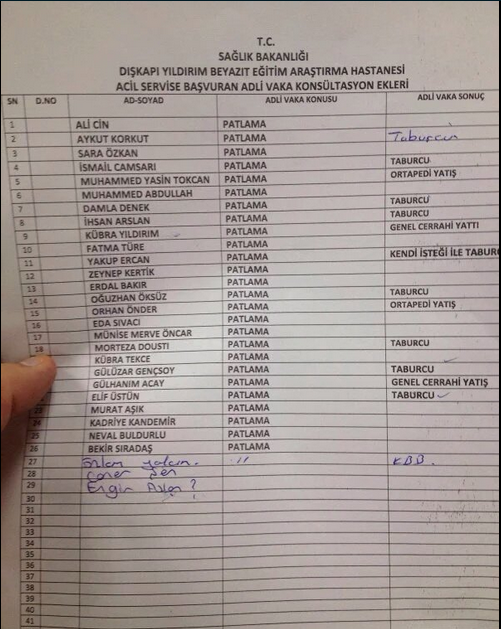 T.C.
SAĞLIK BAKANLIĞI
DIŞKAPI YILDIRIM BEYAZIT EĞİTİM ARAŞTIRMA HASTANESİ
ACİL SERVİSE BAŞVURAN ADLİ VAKA KONSÜLTASYON EKLERİ
SN D.NO AD-SOYAD ADLİ VAKA KONUSU ADLİ VAKA SONUÇ
1 ALİ CİN PATLAMA
2 AYKUT KORKUT PATLAMA Taburcu
3 SARA ÖZKAN PATLAMA
4 İSMAİL CAMSARI PATLAMA TABURCU
5 MUHAMMED YASİN TOKCAN PATLAMA ORTAPEDİ YATIŞ
6 MUHAMMED ABDULLAH PATLAMA
7 DAMLA DENEK PATLAMA TABURCU
8 İHSAN ARSLAN PATLAMA TABURCU
9 KÜBRA YILDIRIM PATLAMA GENEL CERRAHİ YATTI
10 FATMA TÜRE PATLAMA
11 YAKUP ERCAN PATLAMA KENDİ İSTEĞİ İLE TABURC
12 ZEYNEP KERTİK PATLAMA
13 ERDAL BAKIR PATLAMA
14 OĞUZHAN ÖKSÜZ PATLAMA TABURCU
15 ORHAN ÖNDER PATLAMA ORTAPEDİ YATIŞ
16 EDA SIVACI PATLAMA
17 MÜNİSE MERVE ÖNCAR PATLAMA
18 MORTEZA DOUSTI PATLAMA TABURCU
KÜBRA TEKCE PATLAMA
GÜLÜZAR GENÇSOY PATLAMA TABURCU
GÜLHANIM ACAY PATLAMA GENEL CERRAHİ YATIŞ
ELİF ÜSTÜN PATLAMA TABURCU
23 MURAT AŞIK PATLAMA
24 KADRİYE KANDEMİR PATLAMA
25 NEVAL BULDURLU PATLAMA
26 BEKİR SIRADAŞ PATLAMA
27 " KBB.
28 Şen
29 Engin ?
30
31
32
33
34
35
36
37
38
39
40
41